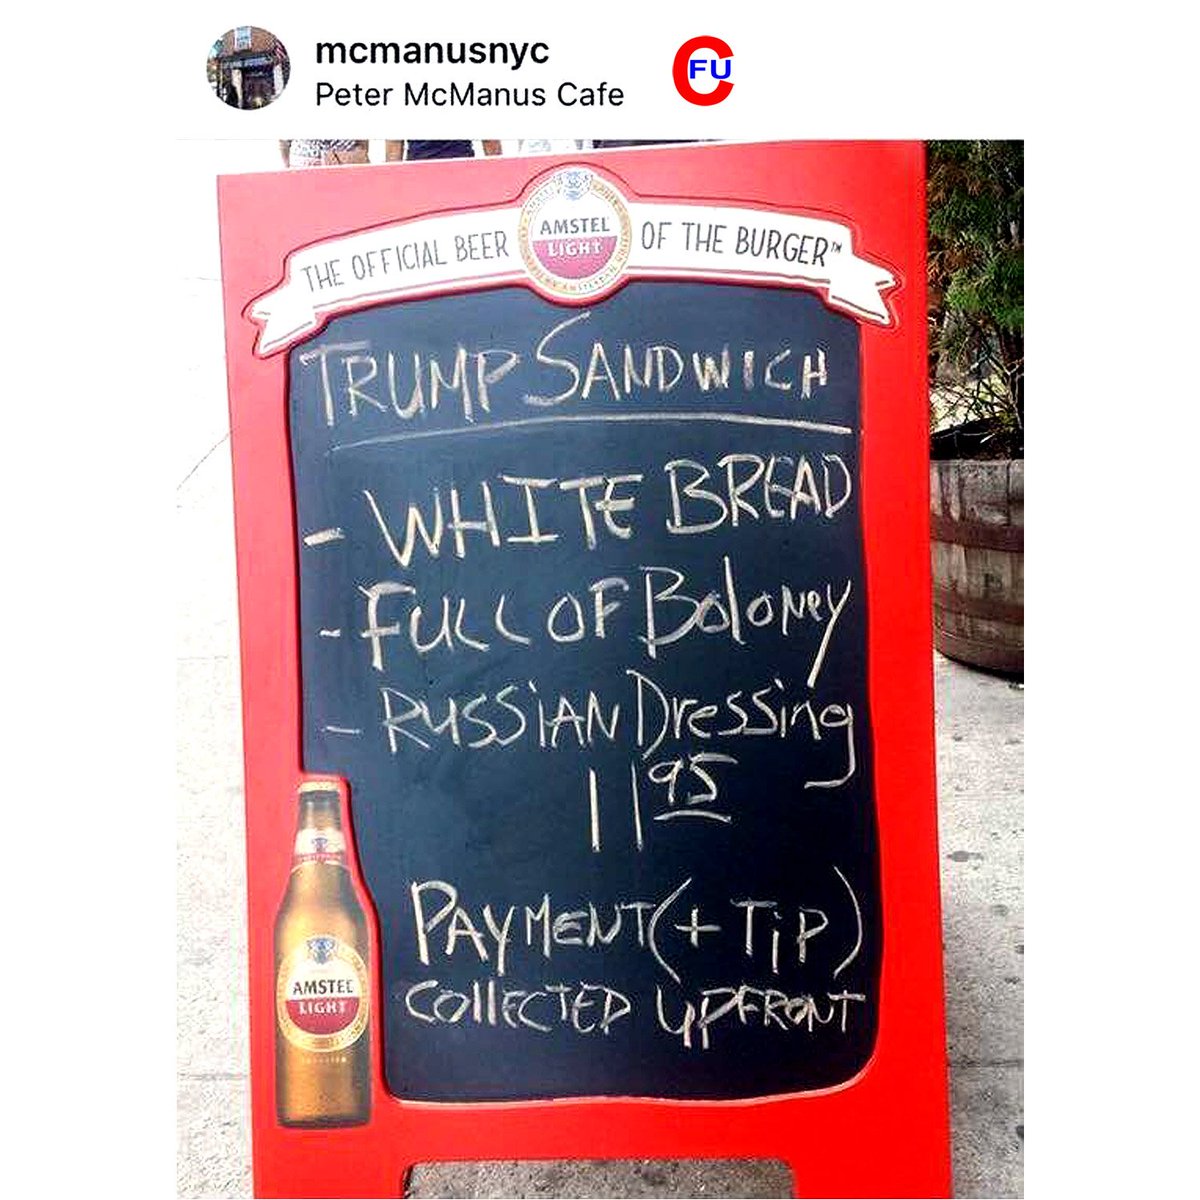 mcmanusnyc
Peter McManus Cafe
FU
THE OFFICIAL BEER OF THE BURGER™
AMSTEL
LIGHT
TRUMP SANDWICH
- WHITE BREAD
- FULL OF BOLONEY
- RUSSIAN Dressing
11 95
PAYMENT (+ TiP)
COLLECTED UPFRONT
AMSTEL
LIGHT